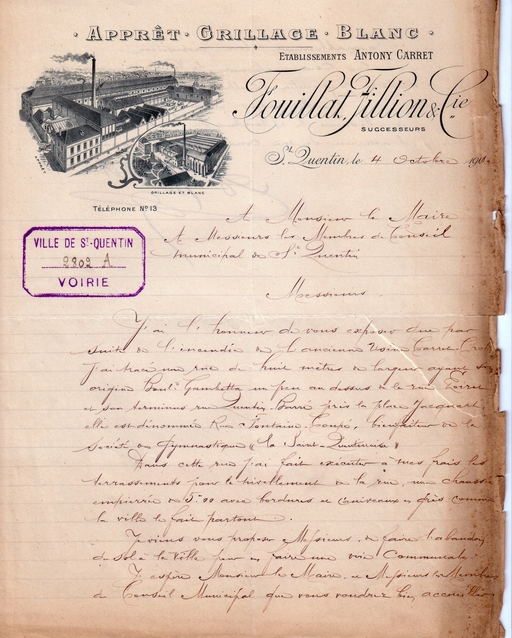 APPRÊT · GRILLAGE · BLANC
ETABLISSEMENTS ANTONY CARRET
Fouillat, Fillion & Cie
SUCCESSEURS
St Quentin, le 4 Octobre 190
GRILLAGE ET BLANC
TÉLÉPHONE Nº 13
VILLE DE St-QUENTIN
2802 A
VOIRIE
A Monsieur le Maire
A Messieurs les Membres du Conseil
Municipal de St Quentin
Messieurs,
J'ai l'honneur de vous exposer que par
suite de l'incendie de l'ancienne Usine Carret
j'ai tracé une rue de huit mètres de largeur ayant son
origine Boult Gambetta un peu au dessus de la rue
et son terminus rue Quentin Barré près la place Jacquart
elle est dénommée Rue Fontaine-Coupé, bienfaiteur de la
Société de Gymnastique "la Saint-Quentinoise"
Dans cette rue j'ai fait exécuter à mes frais les
terrassements pour le nivellement de la rue, une chaussée
empierrée de 5m00 avec bordures et caniveaux en grès comme
la ville le fait partout.
Je viens vous proposer Messieurs, de faire l'abandon
du sol à la Ville pour en faire une voie Communale.
J'espère Monsieur le Maire, et Messieurs les Membres
du Conseil Municipal que vous voudrez bien